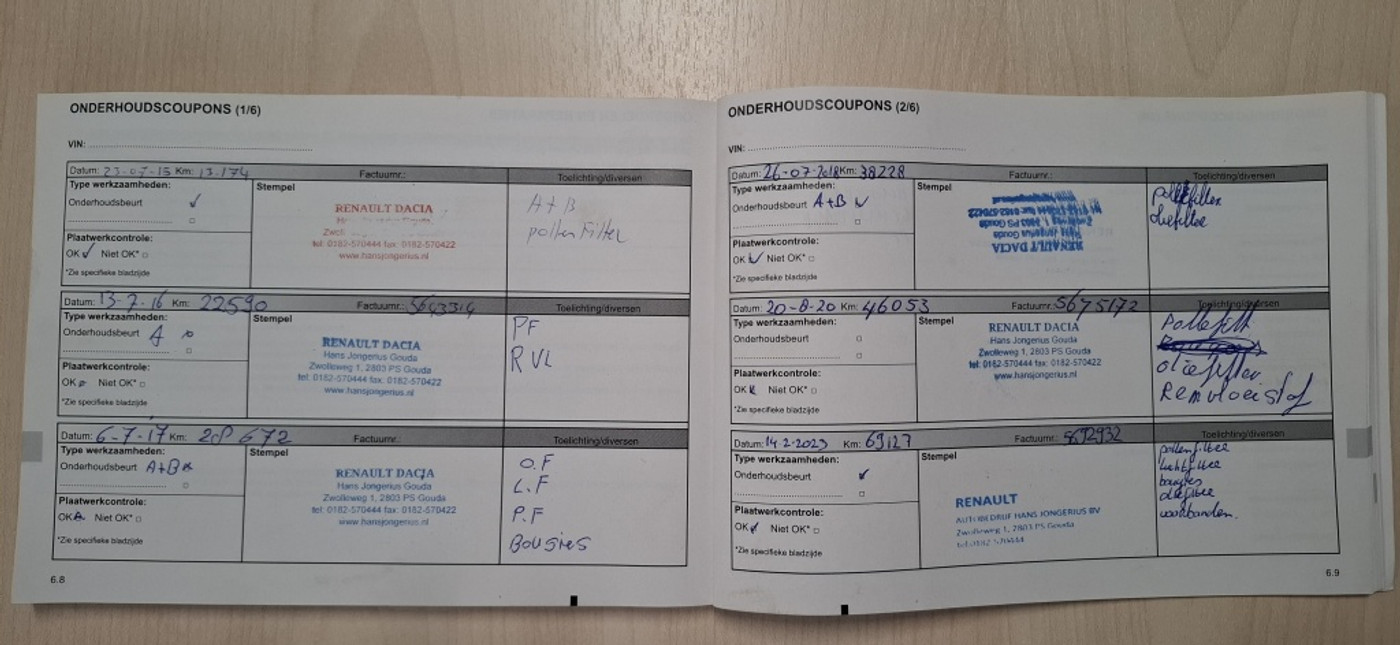 ONDERHOUDSCOUPONS (1/6)
VIN:
Datum: 23-07-15 Km: 13.174 Factuurnr.: Toelichting/diversen
Type werkzaamheden:
Stempel
Onderhoudsbeurt ✓
Plaatwerkcontrole:
OK ✓ Niet OK* □
*Zie specifieke bladzijde
RENAULT DACIA
tel: 0182-570444 fax: 0182-570422
www.hansjongerius.nl
A+B
pollen Filter
Datum: 13-7-16 Km: 22590 Factuurnr.: Toelichting/diversen
Type werkzaamheden:
Stempel
Onderhoudsbeurt A
Plaatwerkcontrole:
OK Niet OK* □
*Zie specifieke bladzijde
RENAULT DACIA
Hans Jongerius Gouda
Zwolleweg 1, 2803 PS Gouda
tel: 0182-570444 fax: 0182-570422
www.hansjongerius.nl
PF
RVL
Datum: 6-7-17 Km: Factuurnr.: Toelichting/diversen
Type werkzaamheden:
Stempel
Onderhoudsbeurt A+B
Plaatwerkcontrole:
OK Niet OK* □
*Zie specifieke bladzijde
RENAULT DACIA
Hans Jongerius Gouda
Zwolleweg 1, 2803 PS Gouda
tel: 0182-570444 fax: 0182-570422
www.hansjongerius.nl
O.F
L.F
P.F
Bougies
6.8
ONDERHOUDSCOUPONS (2/6)
VIN:
Datum: 26-07-2018 Km: 38228 Factuurnr.: Toelichting/diversen
Type werkzaamheden:
Stempel
Onderhoudsbeurt A+B ✓
Plaatwerkcontrole:
OK ✓ Niet OK* □
*Zie specifieke bladzijde
RENAULT DACIA
Hans Jongerius Gouda
Zwolleweg 1, 2803 PS Gouda
oliefilter
Datum: 20-8-20 Km: 46053 Factuurnr.: 5675172 Toelichting/diversen
Type werkzaamheden:
Stempel
Onderhoudsbeurt □
Plaatwerkcontrole:
OK Niet OK* □
*Zie specifieke bladzijde
RENAULT DACIA
Hans Jongerius Gouda
Zwolleweg 1, 2803 PS Gouda
tel: 0182-570444 fax: 0182-570422
www.hansjongerius.nl
oliefilter
Remvloeistof
Datum: 14-2-2023 Km: 69127 Factuurnr.: 5692932 Toelichting/diversen
Type werkzaamheden:
Stempel
Onderhoudsbeurt ✓
Plaatwerkcontrole:
OK ✓ Niet OK* □
*Zie specifieke bladzijde
RENAULT
AUTOBEDRIJF HANS JONGERIUS BV
Zwolleweg 1, 2803 PS Gouda
tel: 0182-570444
pollenfilter
luchtfilter
bougies
oliefilter
voorbanden.
6.9